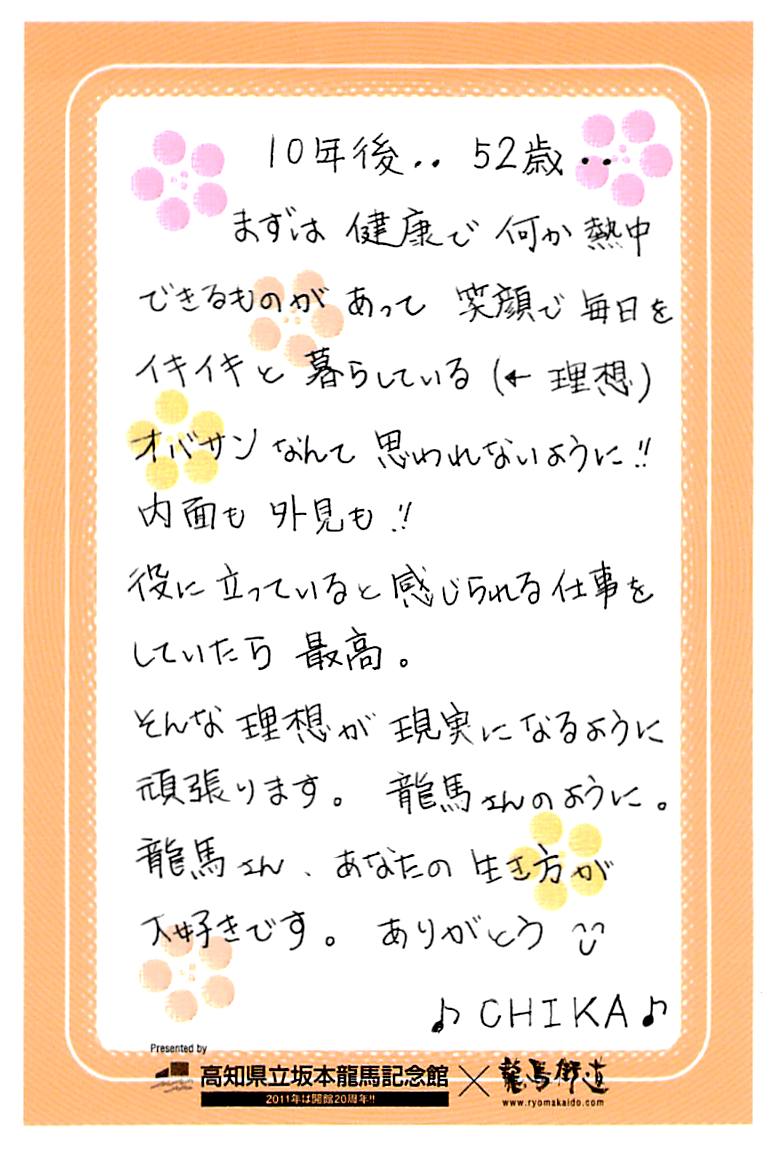 10年後.. 52歳..
まずは 健康で 何か 熱中
できるものが あって 笑顔で 毎日を
イキイキと 暮らしている (← 理想)
オバサン なんて 思われないように!!
内面も 外見も!!
役に立っていると感じられる仕事を
していたら 最高。
そんな 理想が 現実になるように
頑張ります。 龍馬さんのように。
龍馬さん、あなたの 生き方が
大好きです。 ありがとう
♪CHIKA♪
Presented by
高知県立坂本龍馬記念館×龍馬街道
2011年は開館20周年!!
www.ryomakaido.com